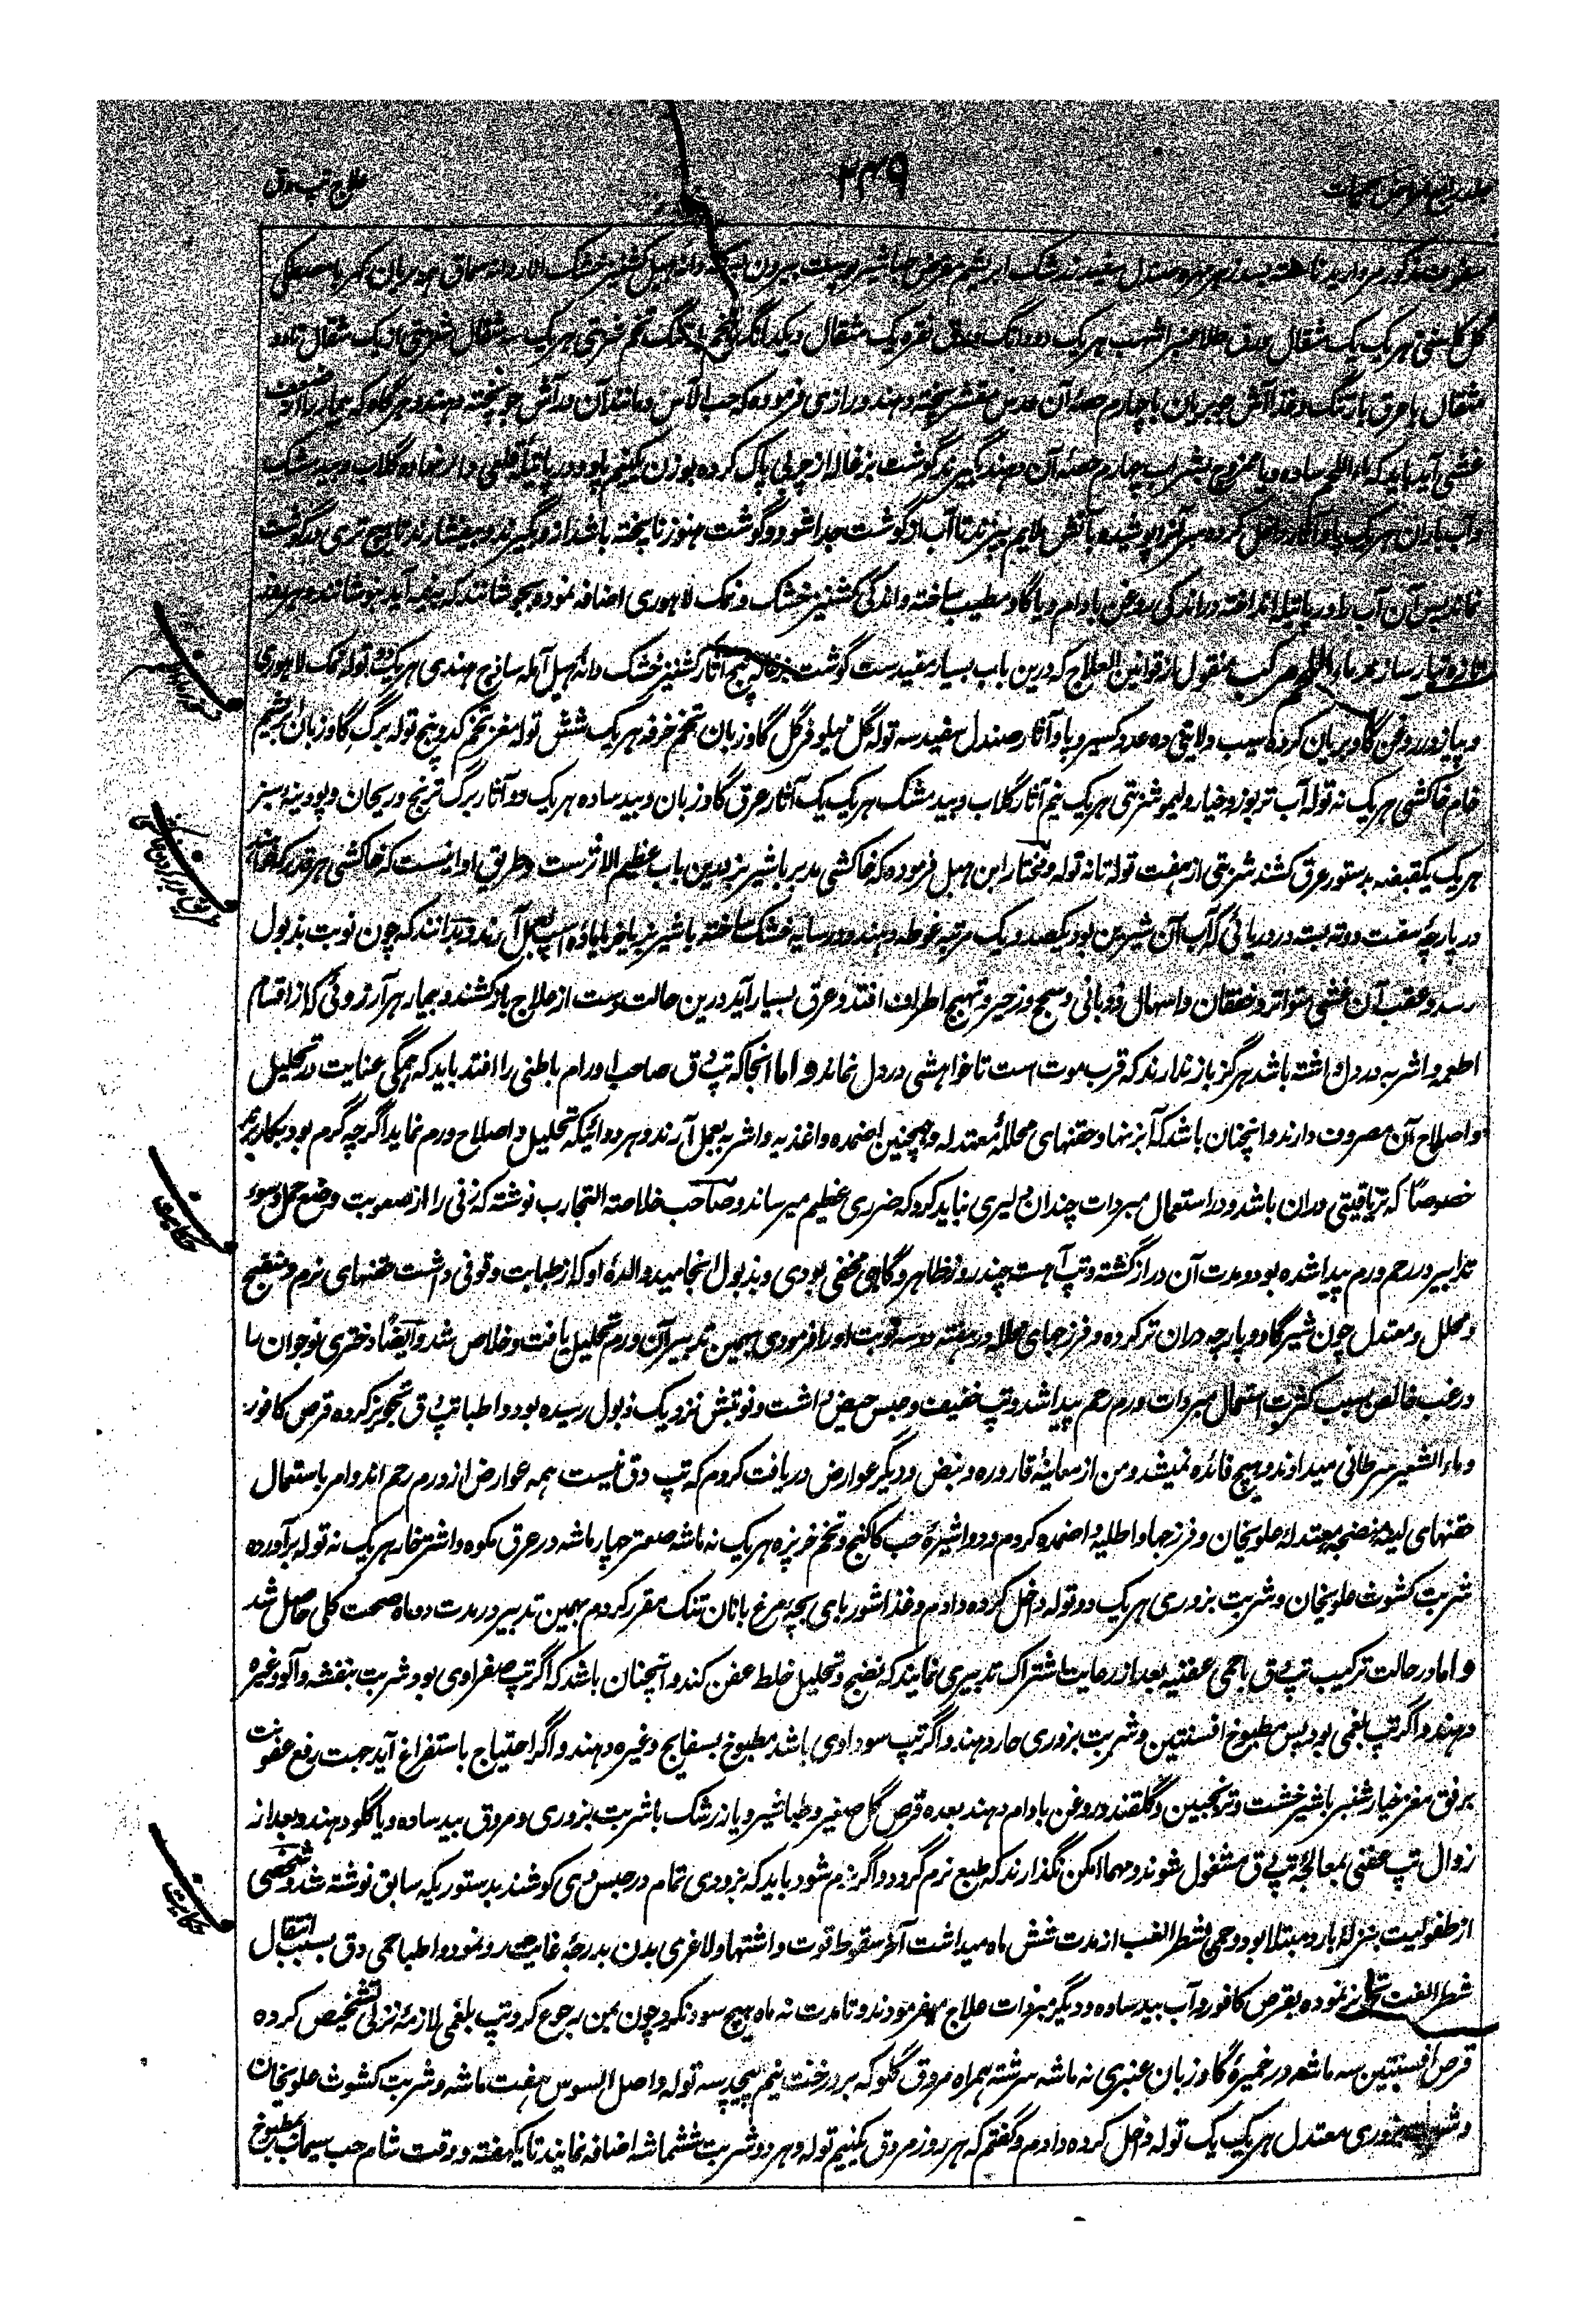 علاج تپ دق
۳۴۹
گل مثقال ورق طلا عنبر اشهب هریک دو دانگ ورق نقره یک مثقال و یکدانگ هریک سه مثقال شربتی از یک مثقال تا دو
مثقال با عرق بارتنگ و غذا آش جو بریان با چهارم حصهٔ آن عدس مقشر پخته دهند و رازی فرموده که حب الآس و مانند آن در آش جو پخته دهند و هرگاه که بیمار را از ضعف
غشی آید باید که ماء اللحم ساده و یا ممزوج بشراب چهارم حصهٔ آن دهند بگیرند گوشت بزغاله از چربی پاک کرده بوزن یکنیم پاو و در پاتیلهٔ قلعی دار نهاده گلاب و بیدمشک
و آب باران هریک پاو آثار داخل کرده سر آنرا پوشیده بآتش ملایم بپزند تا آب از گوشت جدا شود و گوشت هنوز ناپخته باشد ازو بگیرند و بیفشارند تا هیچ تری در گوشت
نماند پس آن آب را در پاتیله انداخته در اندکی روغن بادام و یا گاو مطیب ساخته و اندکی کشنیز خشک و نمک لاهوری اضافه نموده بجوشانند که بپزد آید بنوشانند و هر روز
تازه تیار سازند ماء اللحم مرکب منقول از قوانین العلاج که درین باب بسیار مفید است گوشت بزغاله پنج آثار کشنیز خشک دانهٔ هیل آمله ساذج هندی هریک دو توله نمک لاهوری
و پیاز در روغن گاو بریان کرده سیب ولایتی ده عدد کسیرو پاو آثار صندل سفید سه توله گل نیلوفر گل گاوزبان تخم خرفه هریک شش توله مغز تخم کدو پنج توله برگ گاوزبان ابریشم
خام خاکشی هریک نه توله آب تربوز و خیار و لیمو شربتی هریک نیم آثار گلاب و بیدمشک هریک یک آثار عرق گاوزبان و بید ساده هریک دو آثار برگ ترنج و ریحان و پودینه سبز
هریک یکقبضه بدستور عرق کشند شربتی از هفت توله تا نه توله و مختار ابن هبل فرموده که خاکشی مدبر با شیر بز درین باب عظیم الاثرست و طریق او اینست که خاکشی هر قدر که خواهند
در پارچهٔ سفت دو ته بسته در دریائی که آب آن شیرین بود یکصد و یک مرتبه غوطه دهند و در سایه خشک ساخته با شیر بز یا خر یا مادهٔ اسپ بعمل آرند و بدانند که چون نوبت بذبول
رسد و عقب آن غشی متواتر و خفقان و اسهال ذوبانی و سحج و زحیر و تهیج اطراف افتد و عرق بسیار آید درین حالت دست از علاج باز کشند و بیمار هر آرزوئی که از اقسام
اطعمه و اشربه در دل داشته باشد هرگز باز ندارند که قرب موت است تا خواهشی در دل نماند و اما آنجا که تپ دق صاحب اورام باطنی را افتد باید که همگی عنایت در تحلیل
و اصلاح آن مصروف دارند و آنچنان باشد که آبزنها و حقنهای محللهٔ معتدله و همچنین اضمده و اغذیه و اشربه بعمل آرند و هر دوائیکه تحلیل و اصلاح ورم نماید اگرچه گرم بود بکار برند
خصوصاً که تریاقیتی دران باشد و در استعمال مبردات چندان دلیری نباید کرد که ضرری عظیم میرساند و صاحب خلاصة التجارب نوشته که زنی را از صعوبت وضع حمل و سوء
تدابیر در رحم ورم پیدا شده بود و مدت آن دراز گشته و تپ آهسته چند روز ظاهر و گاهی مخفی بودی و بذبول انجامید والدهٔ او که از طبابت وقوفی داشت حقنهای نرم و منضج
و محلل و معتدل چون شیر گاو و پارچه دران تر کرده و فرزجهای محلله در هفته دو سه نوبت او را فرمودی بهمین تدبیر آن ورم تحلیل یافت و خلاص شد و ایضاً دختری نوجوان را
در غب خالص بسبب کثرت استعمال مبردات ورم رحم پیدا شد و تپ خفیف و حبس حیض داشت و نوبتش نزدیک ذبول رسیده بود و اطبا تپ دق تجویز کرده قرص کافور
و ماء الشعیر سرطانی میدادند و هیچ فائده نمیشد و من از معاینهٔ قاروره و نبض و دیگر عوارض دریافت کردم که تپ دق نیست همه عوارض از ورم رحم اند و امر باستعمال
حقنهای لینهٔ منضجه معتدلهٔ علویخان و فرزجها و اطلیه و اضمده کردم و دوا شیرهٔ حب کاکنج و تخم خرپزه هریک نه ماشه صعتر چهار ماشه در عرق مکوه و اشترخار هریک نه توله برآورده
شربت کشوث علویخان و شربت بزوری هریک دو توله داخل کرده دادم و غذا شوربای بچهٔ مرغ با نان تنک مقرر کردم بهمین تدبیر در مدت دو ماه صحت کلی حاصل شد
و اما در حالت ترکیب تپ دق با حمی عفنیه بعد از رعایت اشتراک تدبیری نمایند که نضج و تحلیل خلط عفن کند و آنچنان باشد که اگر تپ صفراوی بود شربت بنفشه و آلو و غیره
دهند و اگر تپ بلغمی بود پس مطبوخ افسنتین و شربت بزوری حار دهند و اگر تپ سوداوی باشد مطبوخ بسفایج و غیره دهند و اگر احتیاج باستفراغ آید جهت رفع عفونت
برفق مغز خیارشنبر با شیرخشت و ترنجبین و گلقند و روغن بادام دهند بعده قرص گل صغیر و طباشیر و یا زرشک با شربت بزوری و مروق بید ساده و یا گلو دهند و بعد از
زوال تپ عفنی بمعالجهٔ تپ دق مشغول شوند و مهما امکن نگذارند که طبع نرم گردد و اگر نرم شود باید که بزودی تمام در حبس وی کوشند بدستوریکه سابق نوشته شد و شخصی
از طفولیت بنزلهٔ بارد مبتلا بود و حمی شطر الغب از مدت شش ماه میداشت آخر سقوط قوت و اشتها و لاغری بدن بدرجهٔ غایت رو نمود و اطبا حمی دق بسبب انتقال
شطر الغب تجویز نموده بقرص کافور و آب بید ساده و دیگر مبردات علاج میفرمودند و تا مدت نه ماه هیچ سود نکرد و چون بمن رجوع کرد تپ بلغمی لازمهٔ نزلی تشخیص کرده
قرص افسنتین سه ماشه در خمیرهٔ گاوزبان عنبری نه ماشه سرشته همراه مروق گلو که بر درخت نیم پیچد سه توله و اصل السوس هفت ماشه و شربت کشوث علویخان
و شربت بزوری معتدل هریک یک توله داخل کرده دادم و گفتم که هر روز مروق یکنیم توله و هر دو شربت ششماشه اضافه نمایند تا یکهفته و وقت شام حب سیماب بمطبوخ
حکایت
حکایت